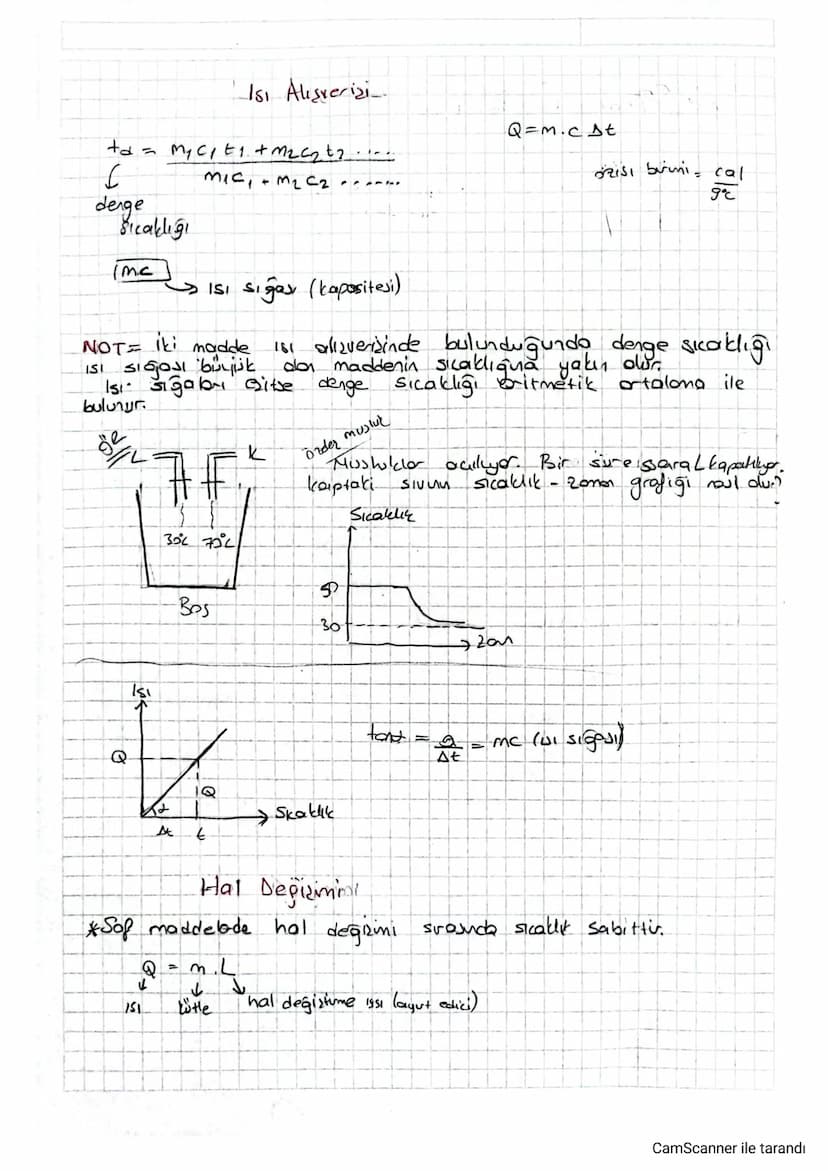 Isı Alışverişi
Q = m.c Δt
td = m1c1t1 + m2c2t2 .....
m1c1 + m2c2 .......
özısı birimi = cal
g°c
denge
sıcaklığı
mc
ısı sığası (kapasitesi)
NOT= iki madde ısı alışverişinde bulunduğunda denge sıcaklığı
ısı sığası büyük olan maddenin sıcaklığına yakın olur.
Isı sığaları eşitse denge sıcaklığı aritmetik ortalama ile
bulunur.
ÖR
L
K
özdeş musluk
Musluklar açılıyor. Bir süre sonra L kapatılıyor.
kaptaki sıvının sıcaklık - zaman grafiği nasıl olur?
30°c 70°c
Boş
Sıcaklık
50
30
zaman
Isı
Q
Q
α
Δt t
Sıcaklık
tanα = Q = mc (ısı sığası)
Δt
Hal Değişimi
*Saf maddelerde hal değişimi sırasında sıcaklık sabittir.
Q = m.L
ısı kütle hal değiştirme ısısı (ayırt edici)
CamScanner ile tarandı